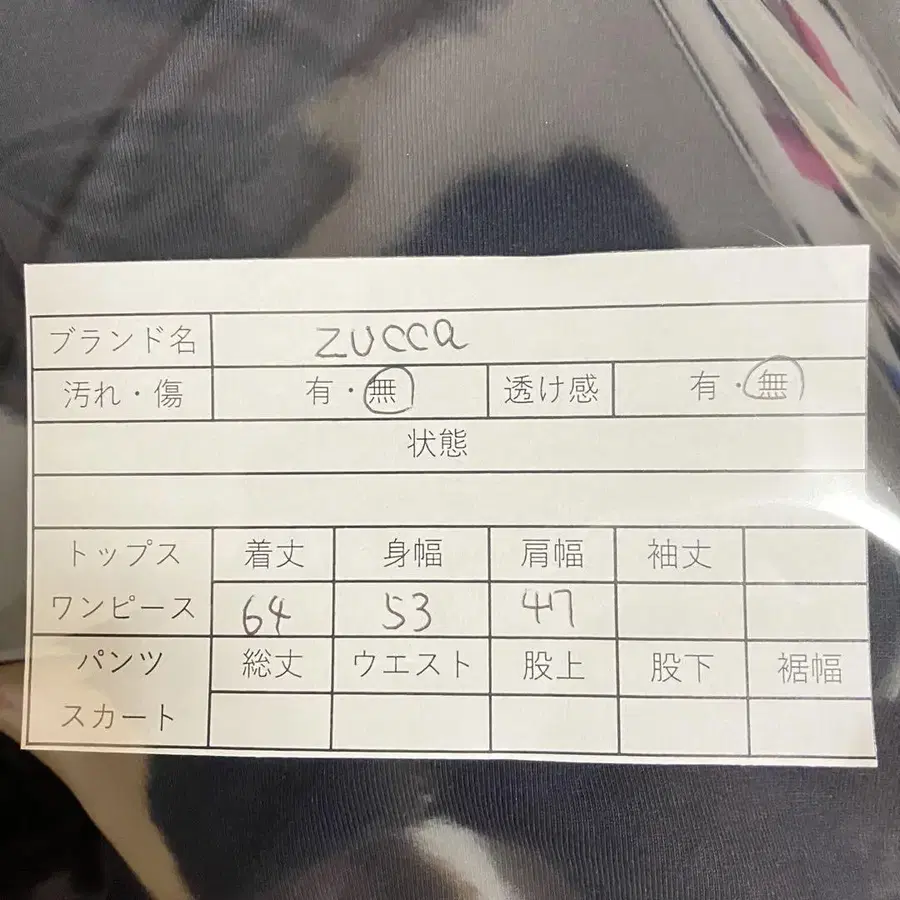 ブランド名 zucca
汚れ・傷 有・無 透け感 有・無
状態
トップス 着丈 身幅 肩幅 袖丈
ワンピース 64 53 47
パンツ 総丈 ウエスト 股上 股下 裾幅
スカート